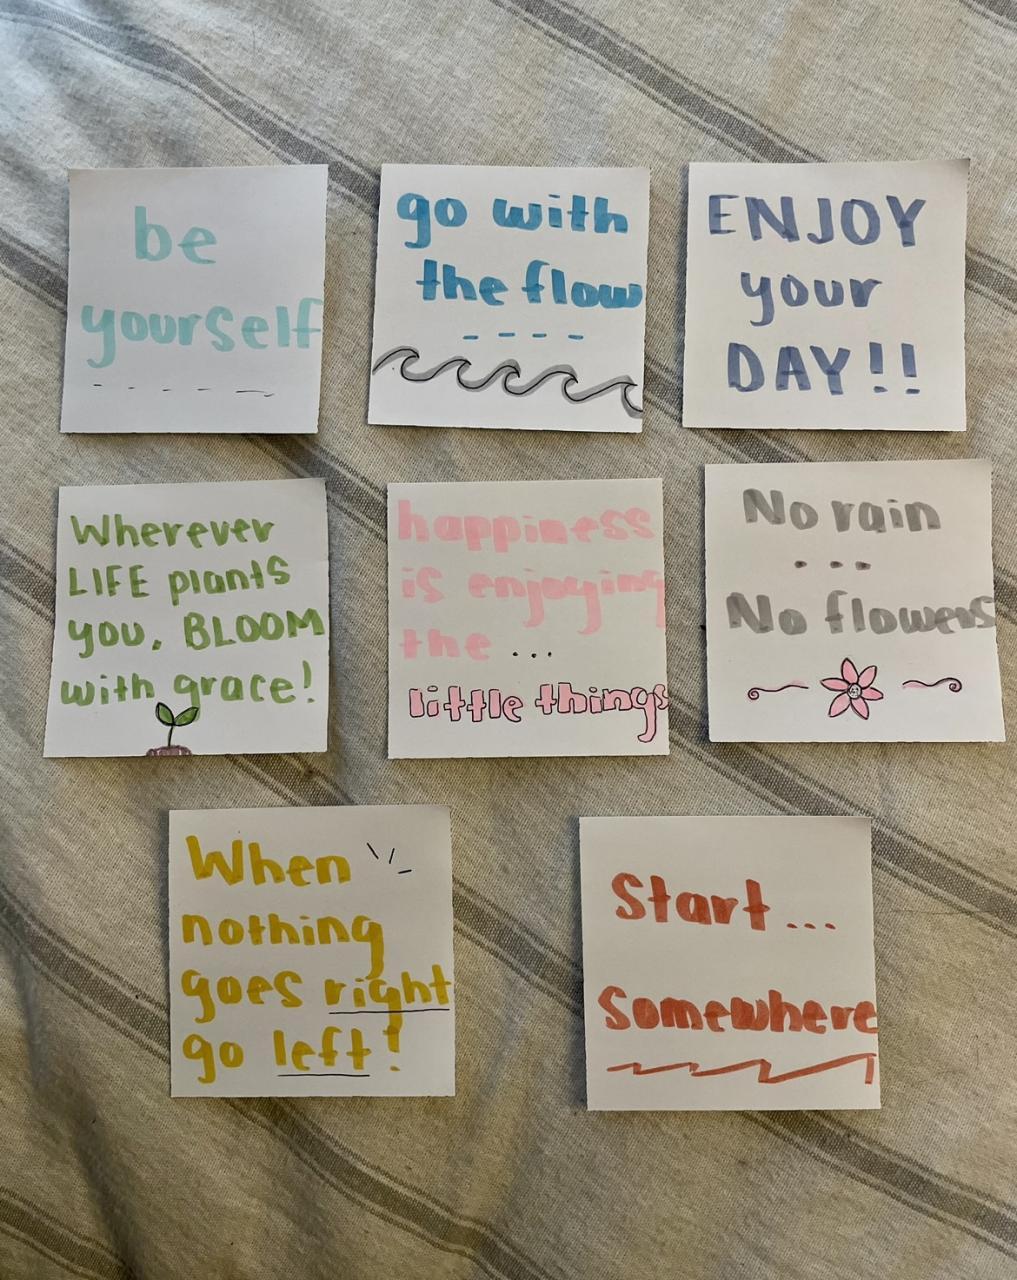 be
yourself
go with
the flow
ENJOY
your
DAY!!
Wherever
LIFE plants
you, BLOOM
with grace!
happiness
is enjoying
the ...
little things
No rain
...
No flowers
When
nothing
goes right
go left!
Start...
Somewhere